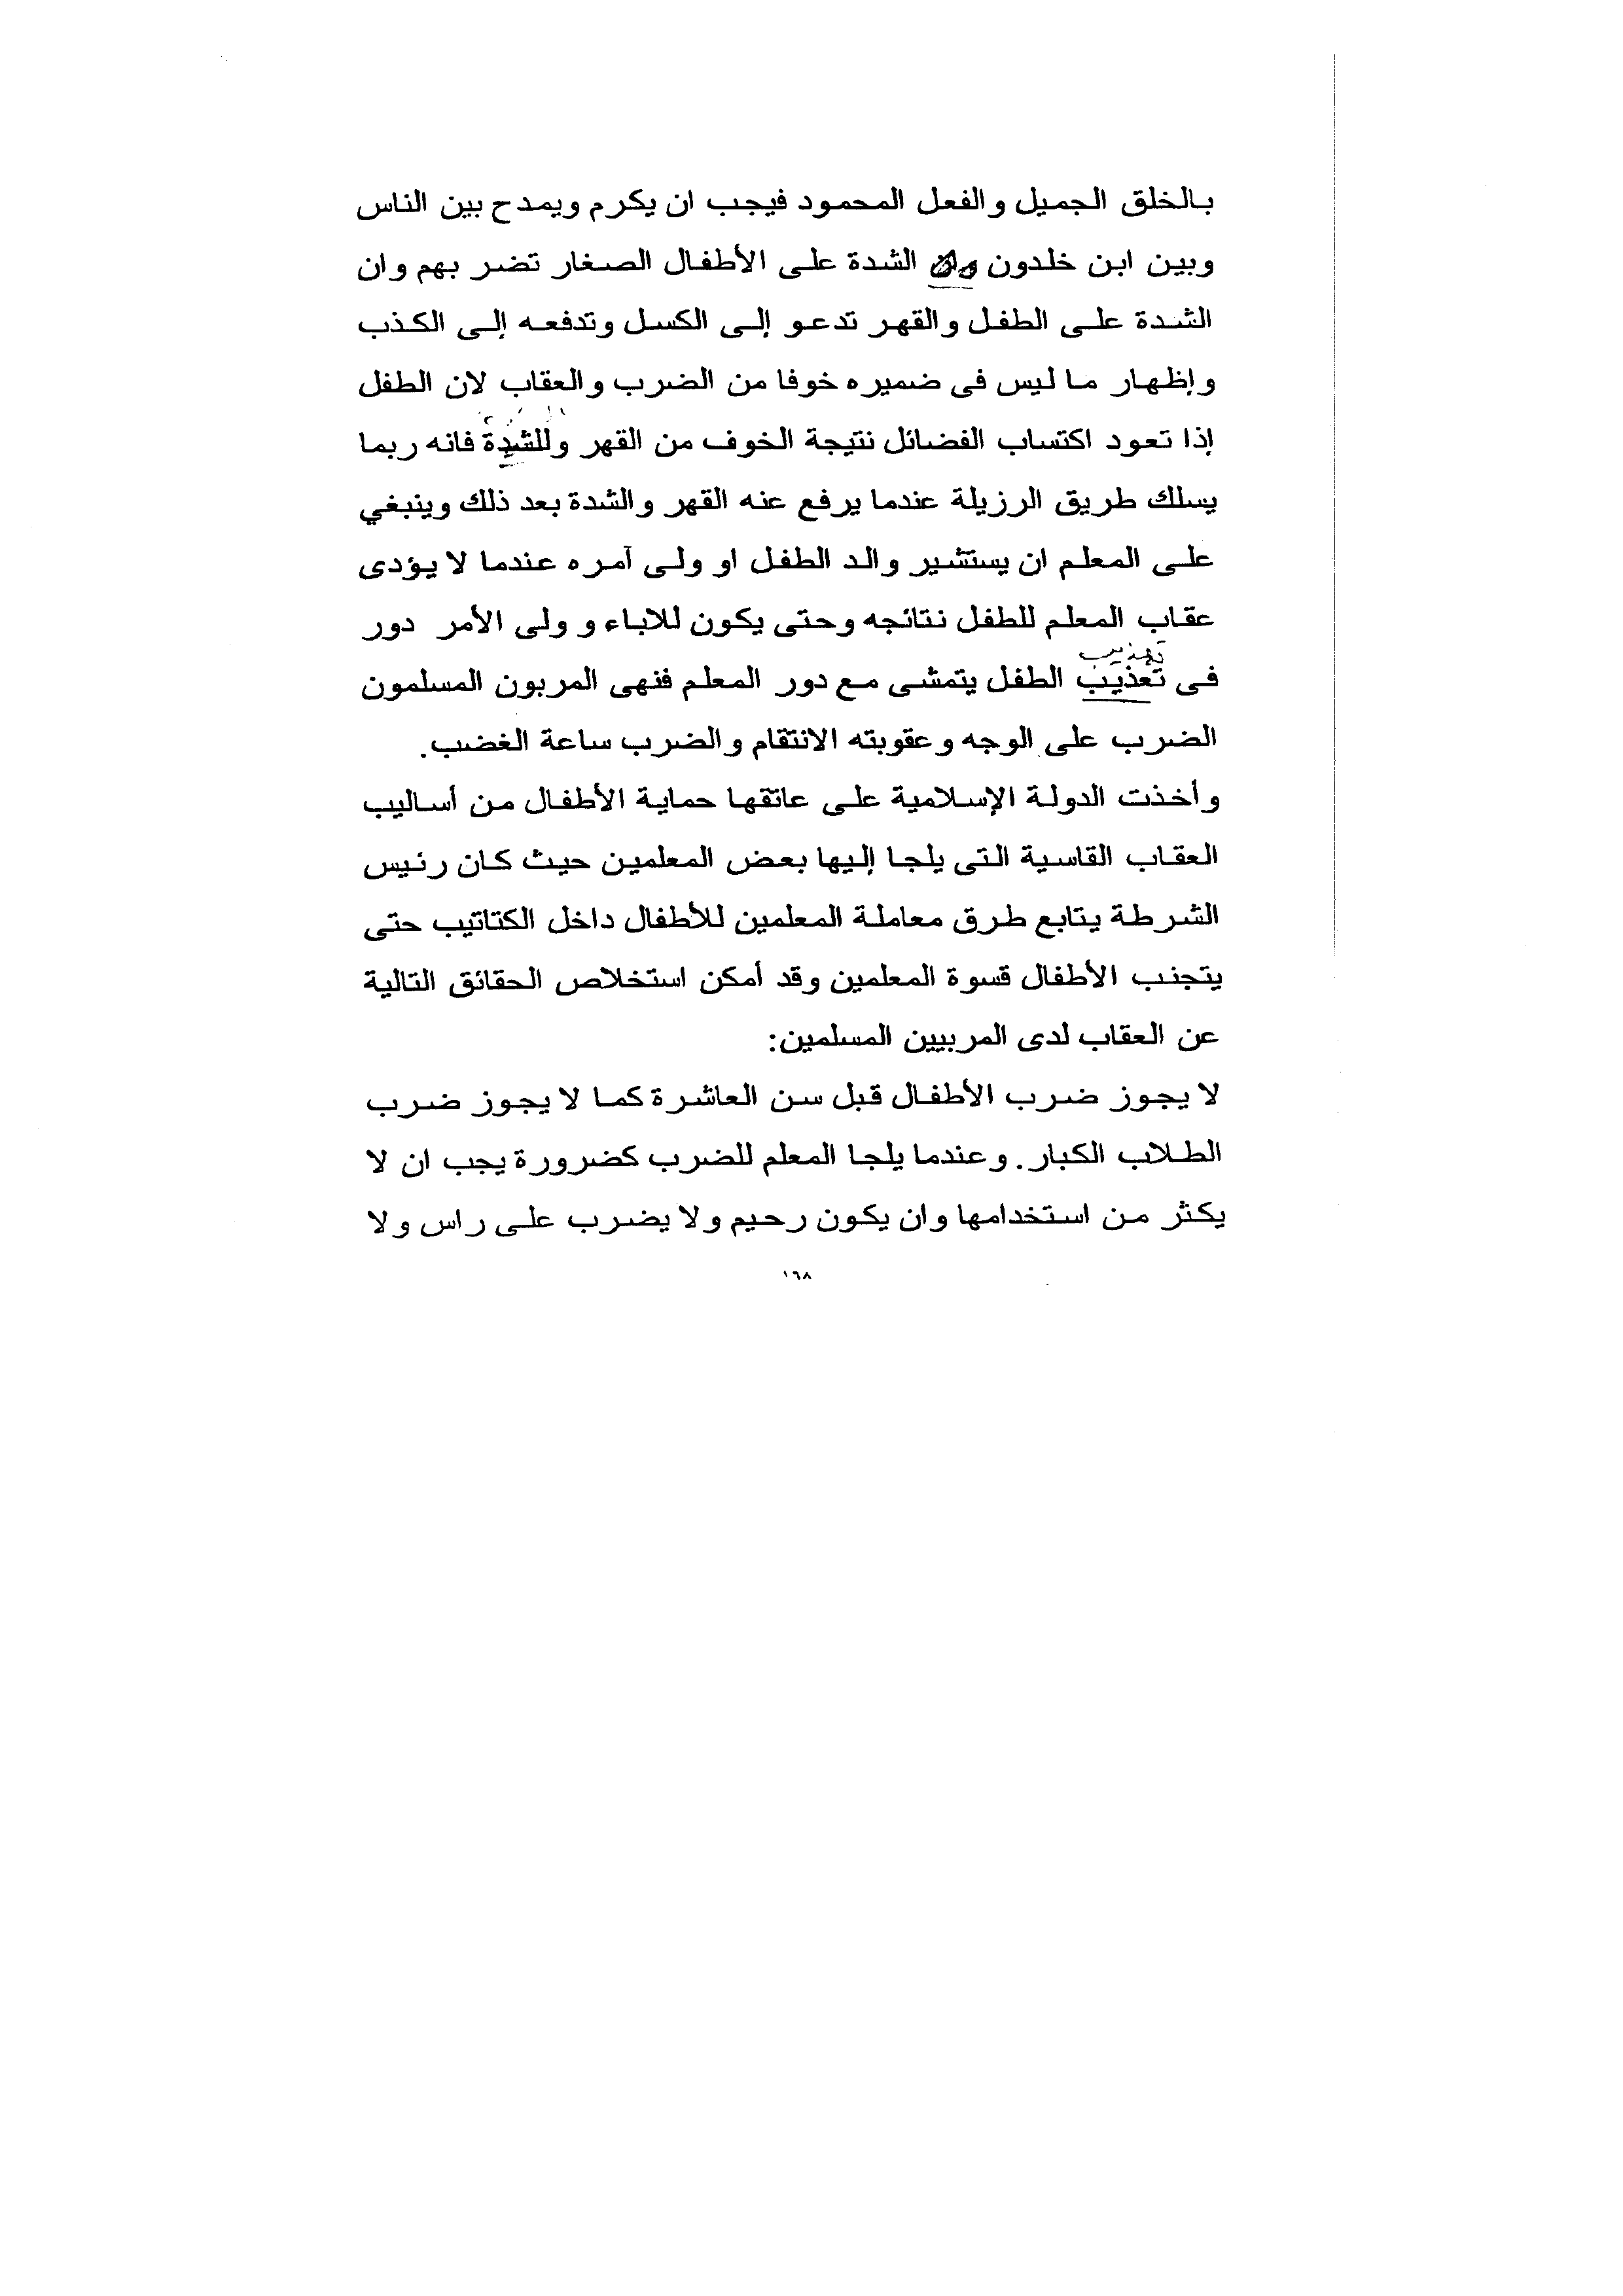 بالخلق الجميل والفعل المحمود فيجب ان يكرم ويمدح بين الناس
وبين ابن خلدون الشدة على الأطفال الصغار تضر بهم وان
الشدة على الطفل والقهر تدعو إلى الكسل وتدفعه إلى الكذب
وإظهار ما ليس فى ضميره خوفا من الضرب والعقاب لان الطفل
إذا تعود اكتساب الفضائل نتيجة الخوف من القهر وللشدة فانه ربما
يسلك طريق الرزيلة عندما يرفع عنه القهر والشدة بعد ذلك وينبغي
على المعلم ان يستشير والد الطفل او ولى آمره عندما لا يؤدى
عقاب المعلم للطفل نتائجه وحتى يكون للاباء و ولى الأمر دور
تهذيب
فى تعذيب الطفل يتمشى مع دور المعلم فنهى المربون المسلمون
الضرب على الوجه وعقوبته الانتقام والضرب ساعة الغضب.
وأخذت الدولة الإسلامية على عاتقها حماية الأطفال من أساليب
العقاب القاسية التى يلجا إليها بعض المعلمين حيث كان رئيس
الشرطة يتابع طرق معاملة المعلمين للأطفال داخل الكتاتيب حتى
يتجنب الأطفال قسوة المعلمين وقد أمكن استخلاص الحقائق التالية
عن العقاب لدى المربيين المسلمين:
لا يجوز ضرب الأطفال قبل سن العاشرة كما لا يجوز ضرب
الطلاب الكبار. وعندما يلجا المعلم للضرب كضرورة يجب ان لا
يكثر من استخدامها وان يكون رحيم ولا يضرب على راس ولا
١٦٨